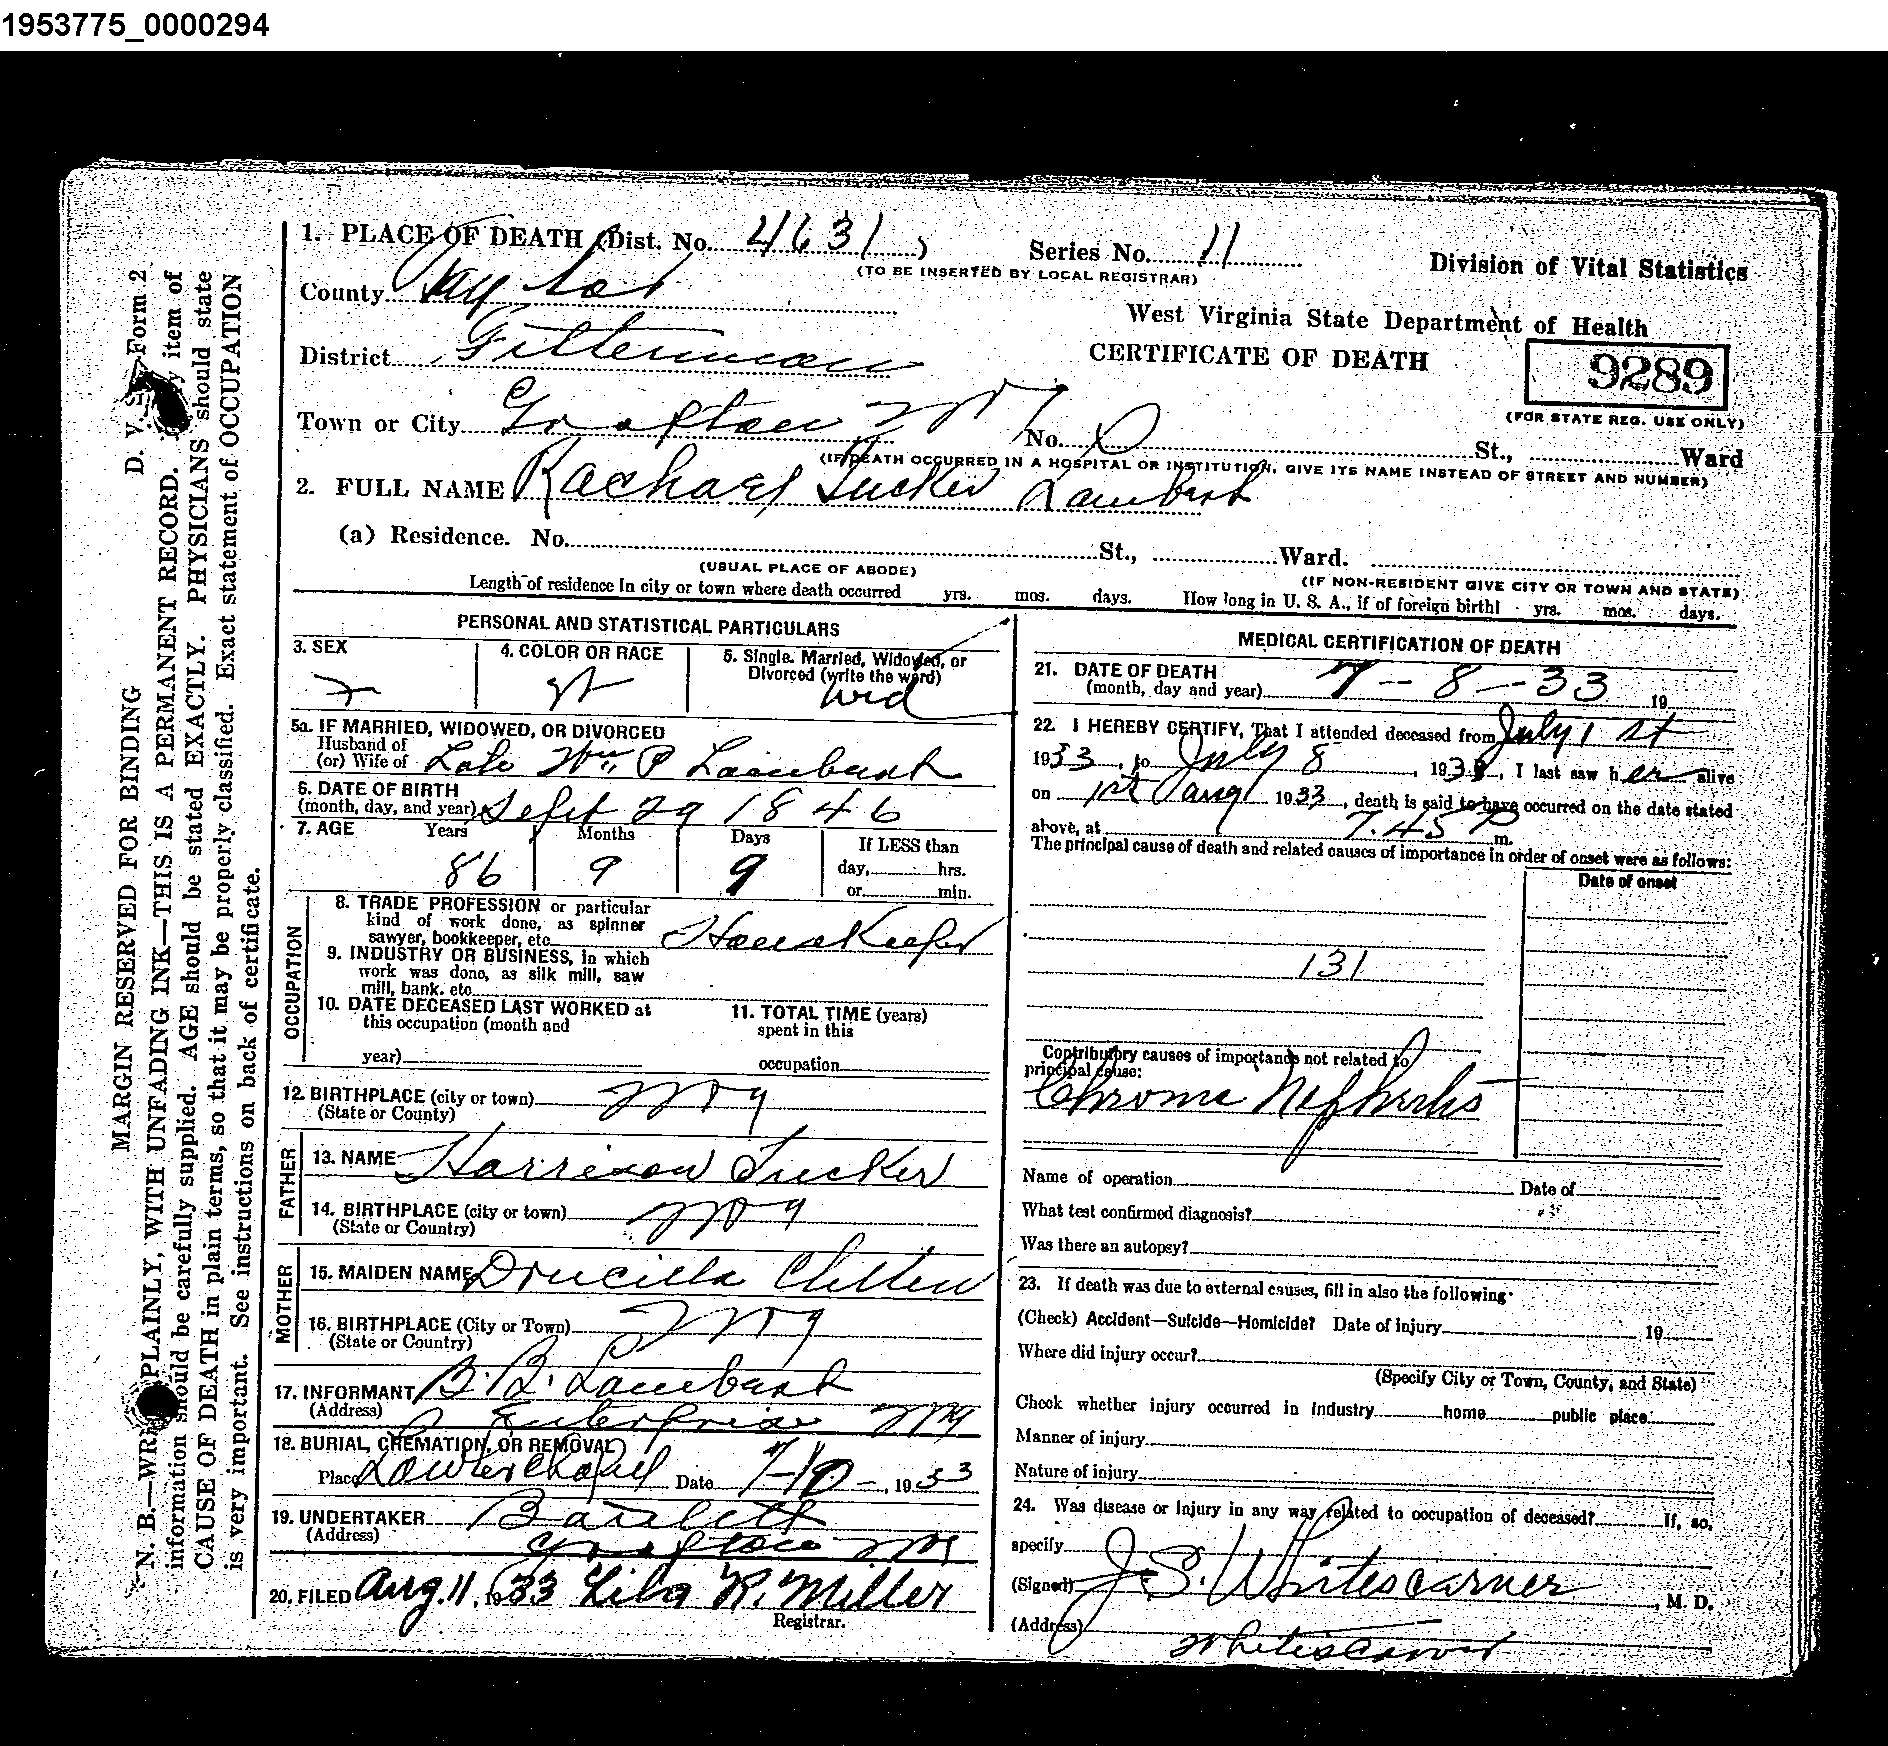 1953775_0000294
1. PLACE OF DEATH (Dist. No. 4631) Series No. 11
(TO BE INSERTED BY LOCAL REGISTRAR)
Division of Vital Statistics
County Taylor
West Virginia State Department of Health
District Fetterman
CERTIFICATE OF DEATH
9289
(FOR STATE REG. USE ONLY)
Town or City Grafton No. St., Ward
(IF DEATH OCCURRED IN A HOSPITAL OR INSTITUTION, GIVE ITS NAME INSTEAD OF STREET AND NUMBER)
2. FULL NAME Rachael Tucker Lambert
(a) Residence. No. St., Ward.
(USUAL PLACE OF ABODE) (IF NON-RESIDENT GIVE CITY OR TOWN AND STATE)
Length of residence in city or town where death occurred yrs. mos. days. How long in U. S. A., if of foreign birth! yrs. mos. days.
PERSONAL AND STATISTICAL PARTICULARS
3. SEX
4. COLOR OR RACE
5. Single, Married, Widowed, or
Divorced (write the word)
Wid
5a. IF MARRIED, WIDOWED, OR DIVORCED
Husband of
(or) Wife of Late Wm P Lambert
6. DATE OF BIRTH
(month, day, and year) Sept 29 1846
7. AGE Years Months Days If LESS than
86 9 9 day, hrs.
or min.
OCCUPATION
8. TRADE PROFESSION or particular
kind of work done, as spinner
sawyer, bookkeeper, etc. HouseKeeper
9. INDUSTRY OR BUSINESS, in which
work was done, as silk mill, saw
mill, bank. etc.
10. DATE DECEASED LAST WORKED at
this occupation (month and
year)
11. TOTAL TIME (years)
spent in this
occupation
12. BIRTHPLACE (city or town)
(State or County)
FATHER
13. NAME Harrison Tucker
14. BIRTHPLACE (city or town)
(State or Country)
MOTHER
15. MAIDEN NAME Drucilla
16. BIRTHPLACE (City or Town)
(State or Country)
17. INFORMANT B. B. Lambert
(Address) Enterprise
18. BURIAL, CREMATION, OR REMOVAL
Place Date 7-10-, 1933
19. UNDERTAKER Bartlett
(Address) Grafton
20. FILED Aug. 11, 1933 R. Miller
Registrar.
MEDICAL CERTIFICATION OF DEATH
21. DATE OF DEATH
(month, day and year) 7-8-33 19
22. I HEREBY CERTIFY, That I attended deceased from July 1 st
1933, to July 8, 1933, I last saw her alive
on 1st Aug 1933, death is said to have occurred on the date stated
above, at 7.45 P m.
The principal cause of death and related causes of importance in order of onset were as follows:
Date of onset
131
Contributory causes of importance not related to
principal cause:
Chronic Nephritis
Name of operation Date of
What test confirmed diagnosis?
Was there an autopsy?
23. If death was due to external causes, fill in also the following:
(Check) Accident—Suicide—Homicide? Date of injury 19
Where did injury occur?
(Specify City or Town, County, and State)
Check whether injury occurred in industry home public place
Manner of injury
Nature of injury
24. Was disease or injury in any way related to occupation of deceased? If, so,
specify
(Signed) J. S. Whitescarver, M. D.
(Address)
D. V. S. Form 2
MARGIN RESERVED FOR BINDING
N. B.—WRITE PLAINLY, WITH UNFADING INK—THIS IS A PERMANENT RECORD. Every item of
information should be carefully supplied. AGE should be stated EXACTLY. PHYSICIANS should state
CAUSE OF DEATH in plain terms, so that it may be properly classified. Exact statement of OCCUPATION
is very important. See instructions on back of certificate.